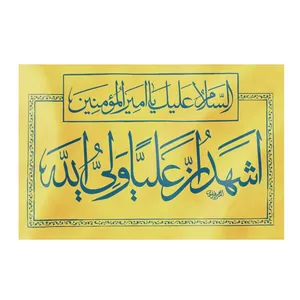 السلام علیك یا امیر المؤمنین
اشهد ان علیا ولی الله